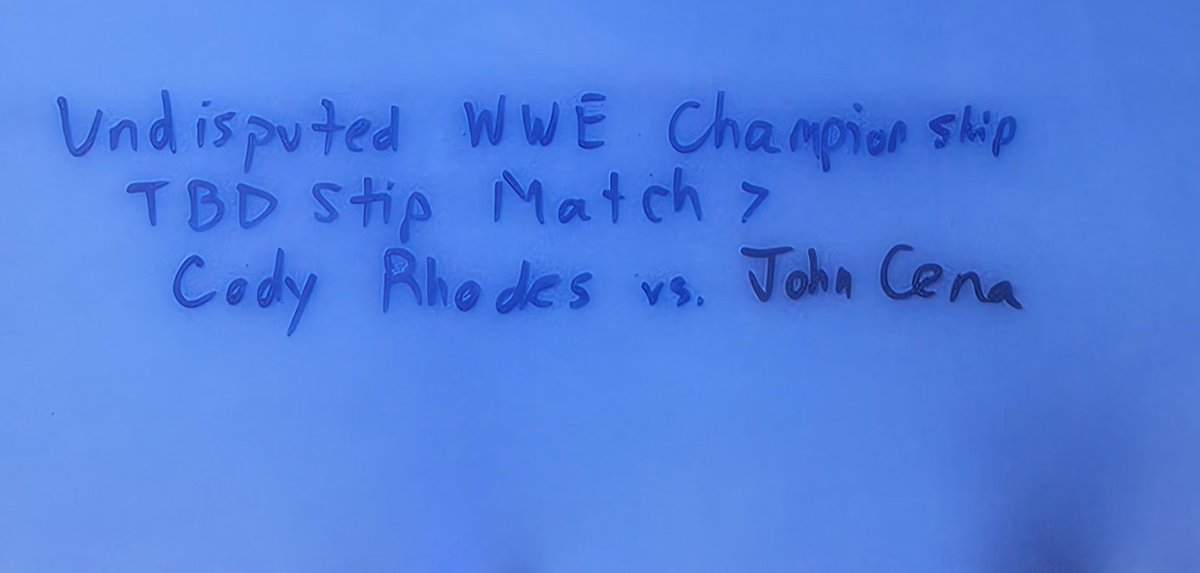 Undisputed WWE Championship
TBD Stip Match >
Cody Rhodes vs. John Cena